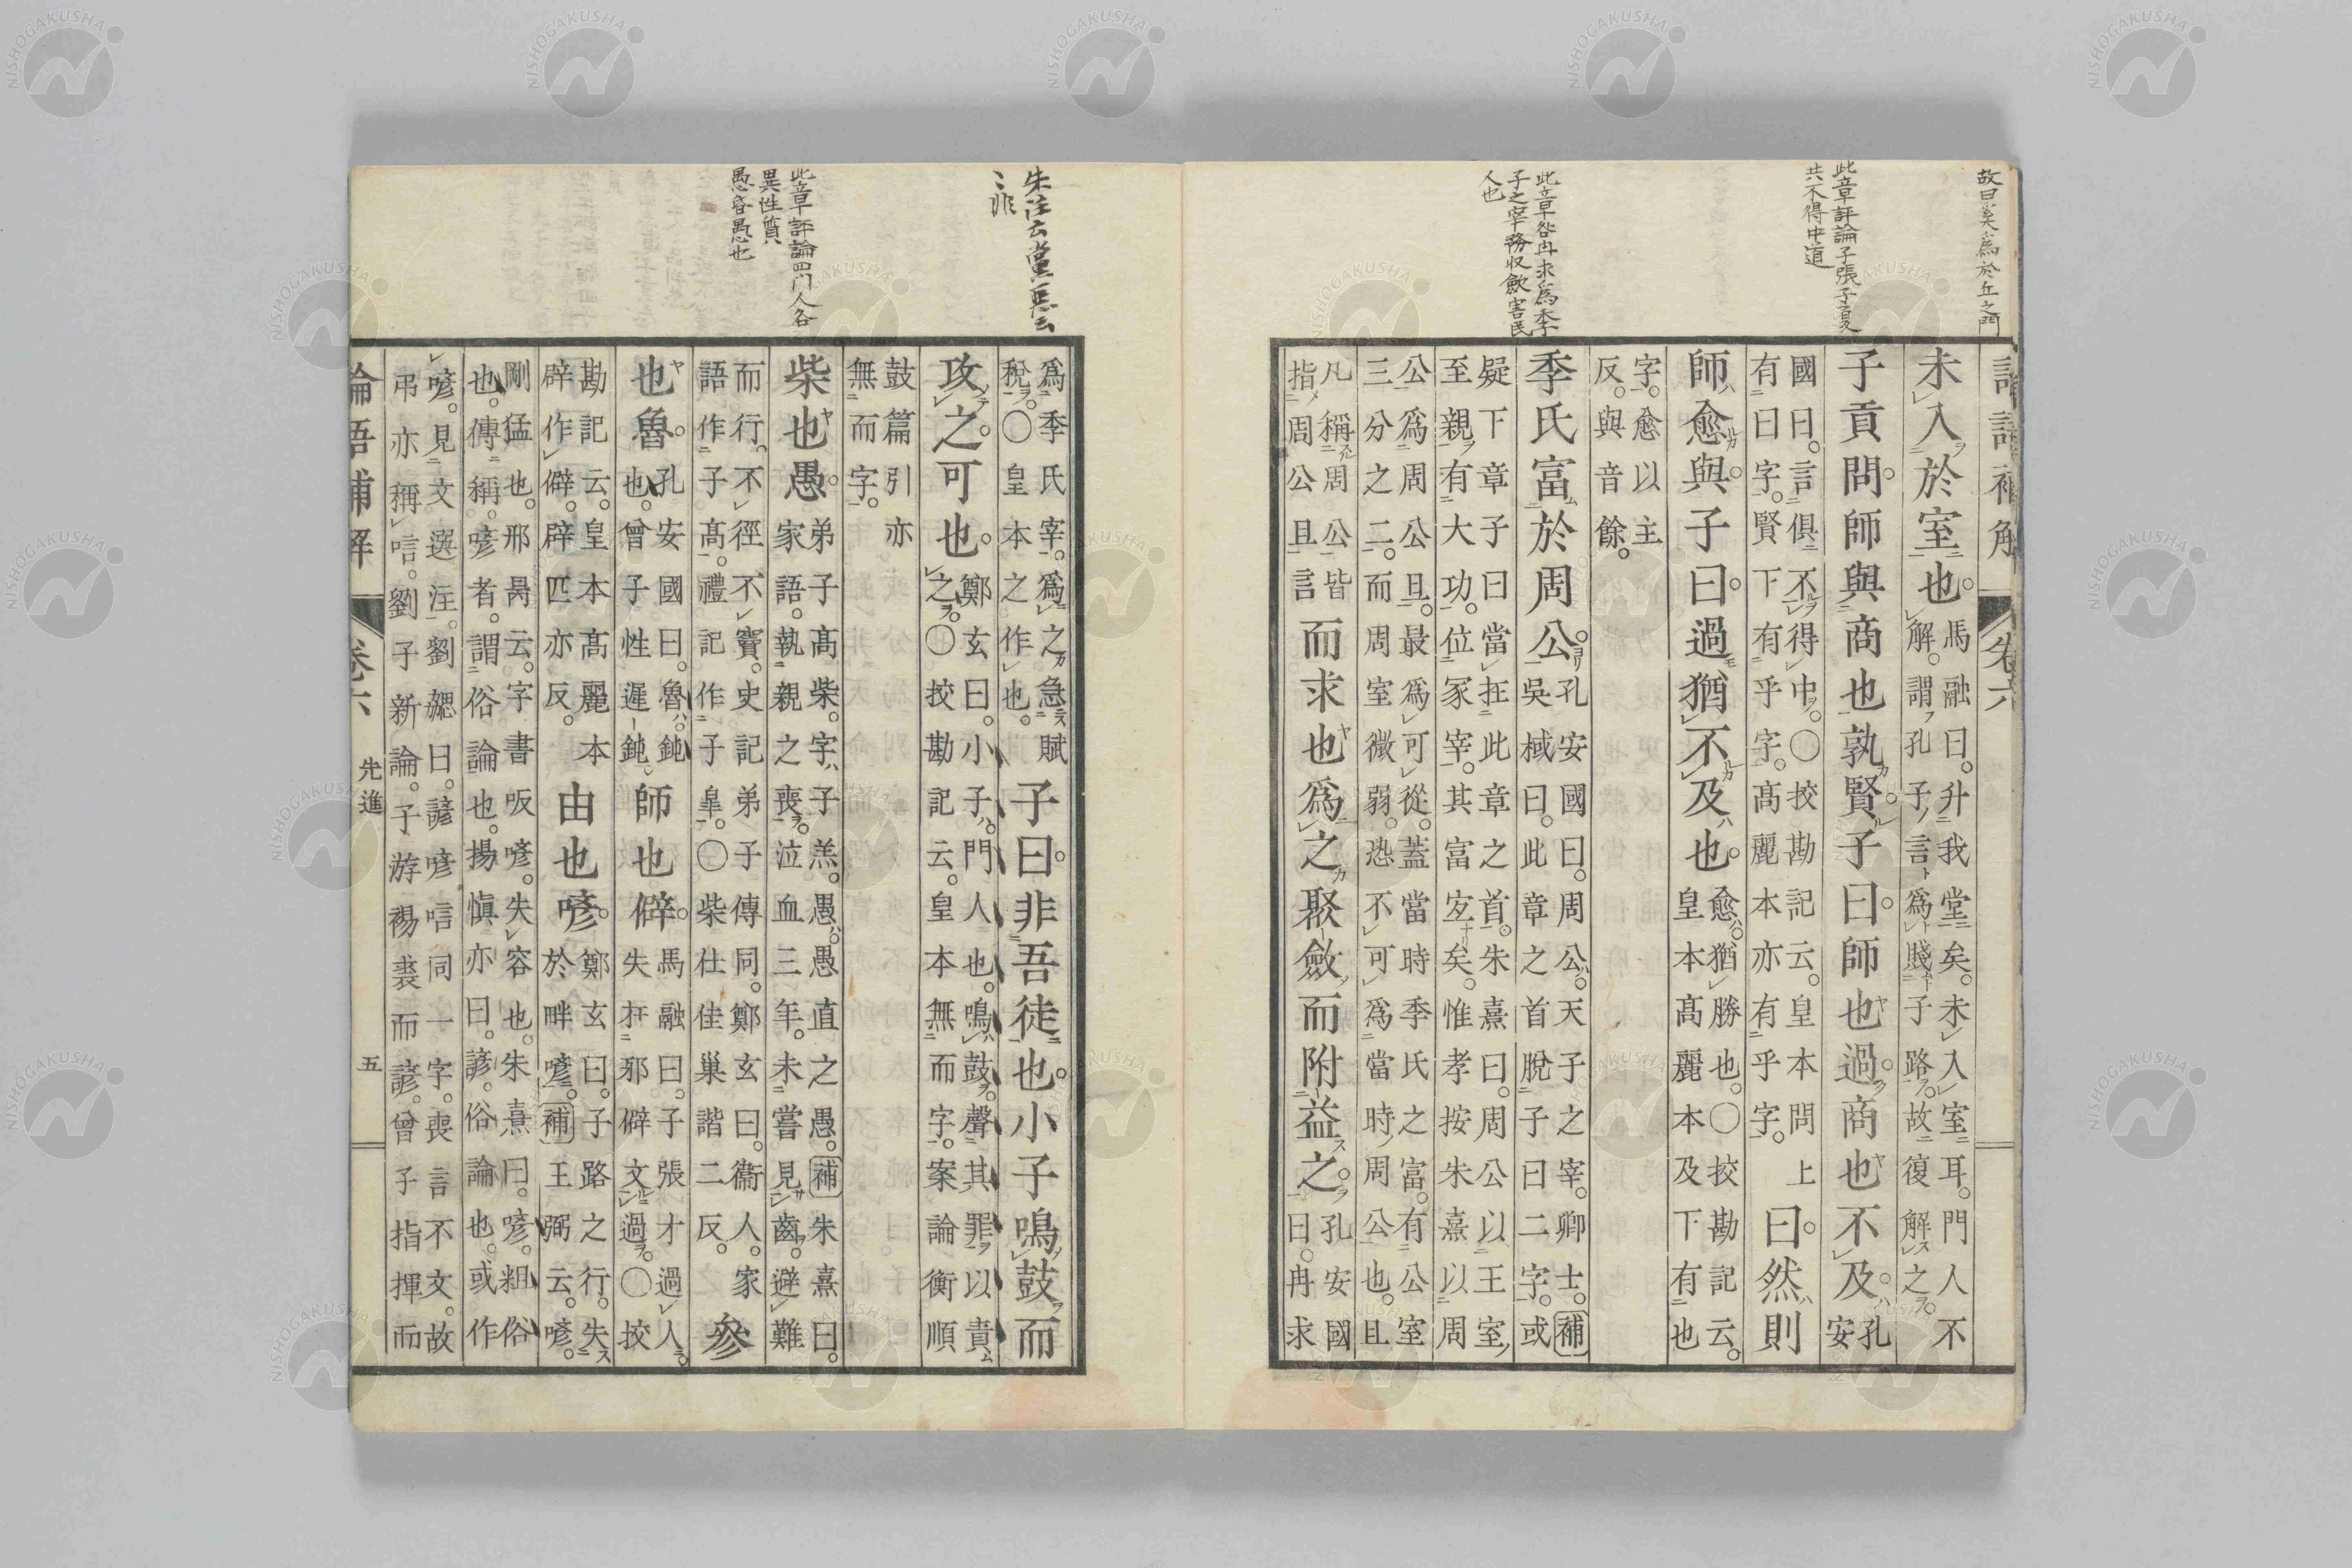 故曰奚爲於丘之門
此章評論子張子夏
共不得中道
此章咎冉求爲季
子之宰務収歛害民
人也
未入於室也。
馬融曰。升我堂矣。未入室耳。門人不
解。謂孔子言爲賤子路。故復解之。
子貢問。師與商也孰賢。子曰。師也過。商也不及。
孔
安
國曰。言俱不得中。〇挍勘記云。皇本問上
有曰字。賢下有乎字。高麗本亦有乎字。
曰。然則
師愈與。子曰。過猶不及也。
愈。猶勝也。〇挍勘記云。
皇本高麗本及下有也
字。愈以主
反。與音餘。
季氏富於周公。
孔安國曰。周公。天子之宰。卿士。補
吳棫曰。此章之首脫子曰二字。或
疑下章子曰當在此章之首。朱熹曰。周公以王室
至親有大功。位冢宰。其富宜矣。惟孝按朱熹以周
公爲周公旦。最爲可從。蓋當時季氏之富。有公室
三分之二。而周室微弱。恐不可爲當時周公也。且
凡稱周公皆
指周公旦言
而求也爲之聚斂而附益之。
孔安國
曰。冉求
爲季氏宰。爲之急賦
稅。〇皇本之作也。
子曰。非吾徒也。小子鳴鼓而
攻之。可也。
鄭玄曰。小子。門人也。鳴鼓。聲其罪以責
之。〇挍勘記云。皇本無而字。案論衡順
鼓篇引亦
無而字。
柴也愚。
弟子高柴。字子羔。愚。愚直之愚。補朱熹曰。
家語。執親之喪。泣血三年。未嘗見齒。避難
而行。不徑不竇。史記弟子傳同。鄭玄曰。衞人。家
語作子高。禮記作子皐。〇柴仕佳巢諧二反。
參
也魯。
孔安國曰。魯。鈍
也。曾子性遲鈍
師也僻。
馬融曰。子張才過人。
失在邪僻文過。〇挍
勘記云。皇本高麗本
辟作僻。辟匹亦反。
由也喭。
鄭玄曰。子路之行。失
於畔喭。補王弼云。喭。
剛猛也。邢昺云。字書㕫喭。失容也。朱熹曰。喭。粗俗
也。傳稱。喭者。謂俗論也。揚愼亦曰。諺。俗論也。或作
喭。見文選注。劉勰曰。諺喭唁同一字。喪言不文。故
弔亦稱唁。劉子新論。子游裼裘而諺。曾子指揮而
朱注云黨惡云
〻非
此章評論四門人各
異性質
愚昏愚也
論語補解
卷六
先進
五